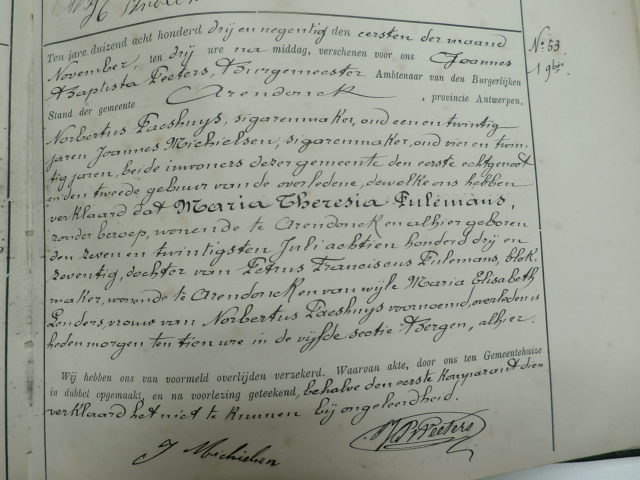 Ten jare duizend acht honderd drij en negentig den eersten der maand
November, ten drij ure na middag, verschenen voor ons Joannes
Baptista Peeters, Burgemeester Ambtenaar van den Burgerlijken
Stand der gemeente Arendonck, provincie Antwerpen,
Norbertus Paeshuys, sigarenmaker, oud een en twintig
jaren Joannes Michielsen, sigarenmaker, oud vier en twin-
tig jaren, beide inwoners dezer gemeente den eerste echtgenoot
en den tweede gebuur van de overledene, dewelke ons hebben
verklaard dat Maria Theresia Fulemans,
zonder beroep, wonende te Arendonck en alhier geboren
den zeven en twintigsten Juli achtien honderd drij en
zeventig, dochter van Petrus Franciscus Fulemans, blok-
maker, wonende te Arendonck en van wijle Maria Elisabeth
Lenders, vrouw van Norbertus Paeshuys voornoemd, overleden is
heden morgen ten tien ure in de vijfde sectie Bergen, alhier.
Wij hebben ons van voormeld overlijden verzekerd. Waarvan akte, door ons ten Gemeentehuize
in dubbel opgemaakt, en na voorlezing geteekend, behalve den eerste komparant dien
verklaard het niet te kunnen bij ongeleerdheid.
J Michielsen
JB Peeters
No. 53
1 9ber